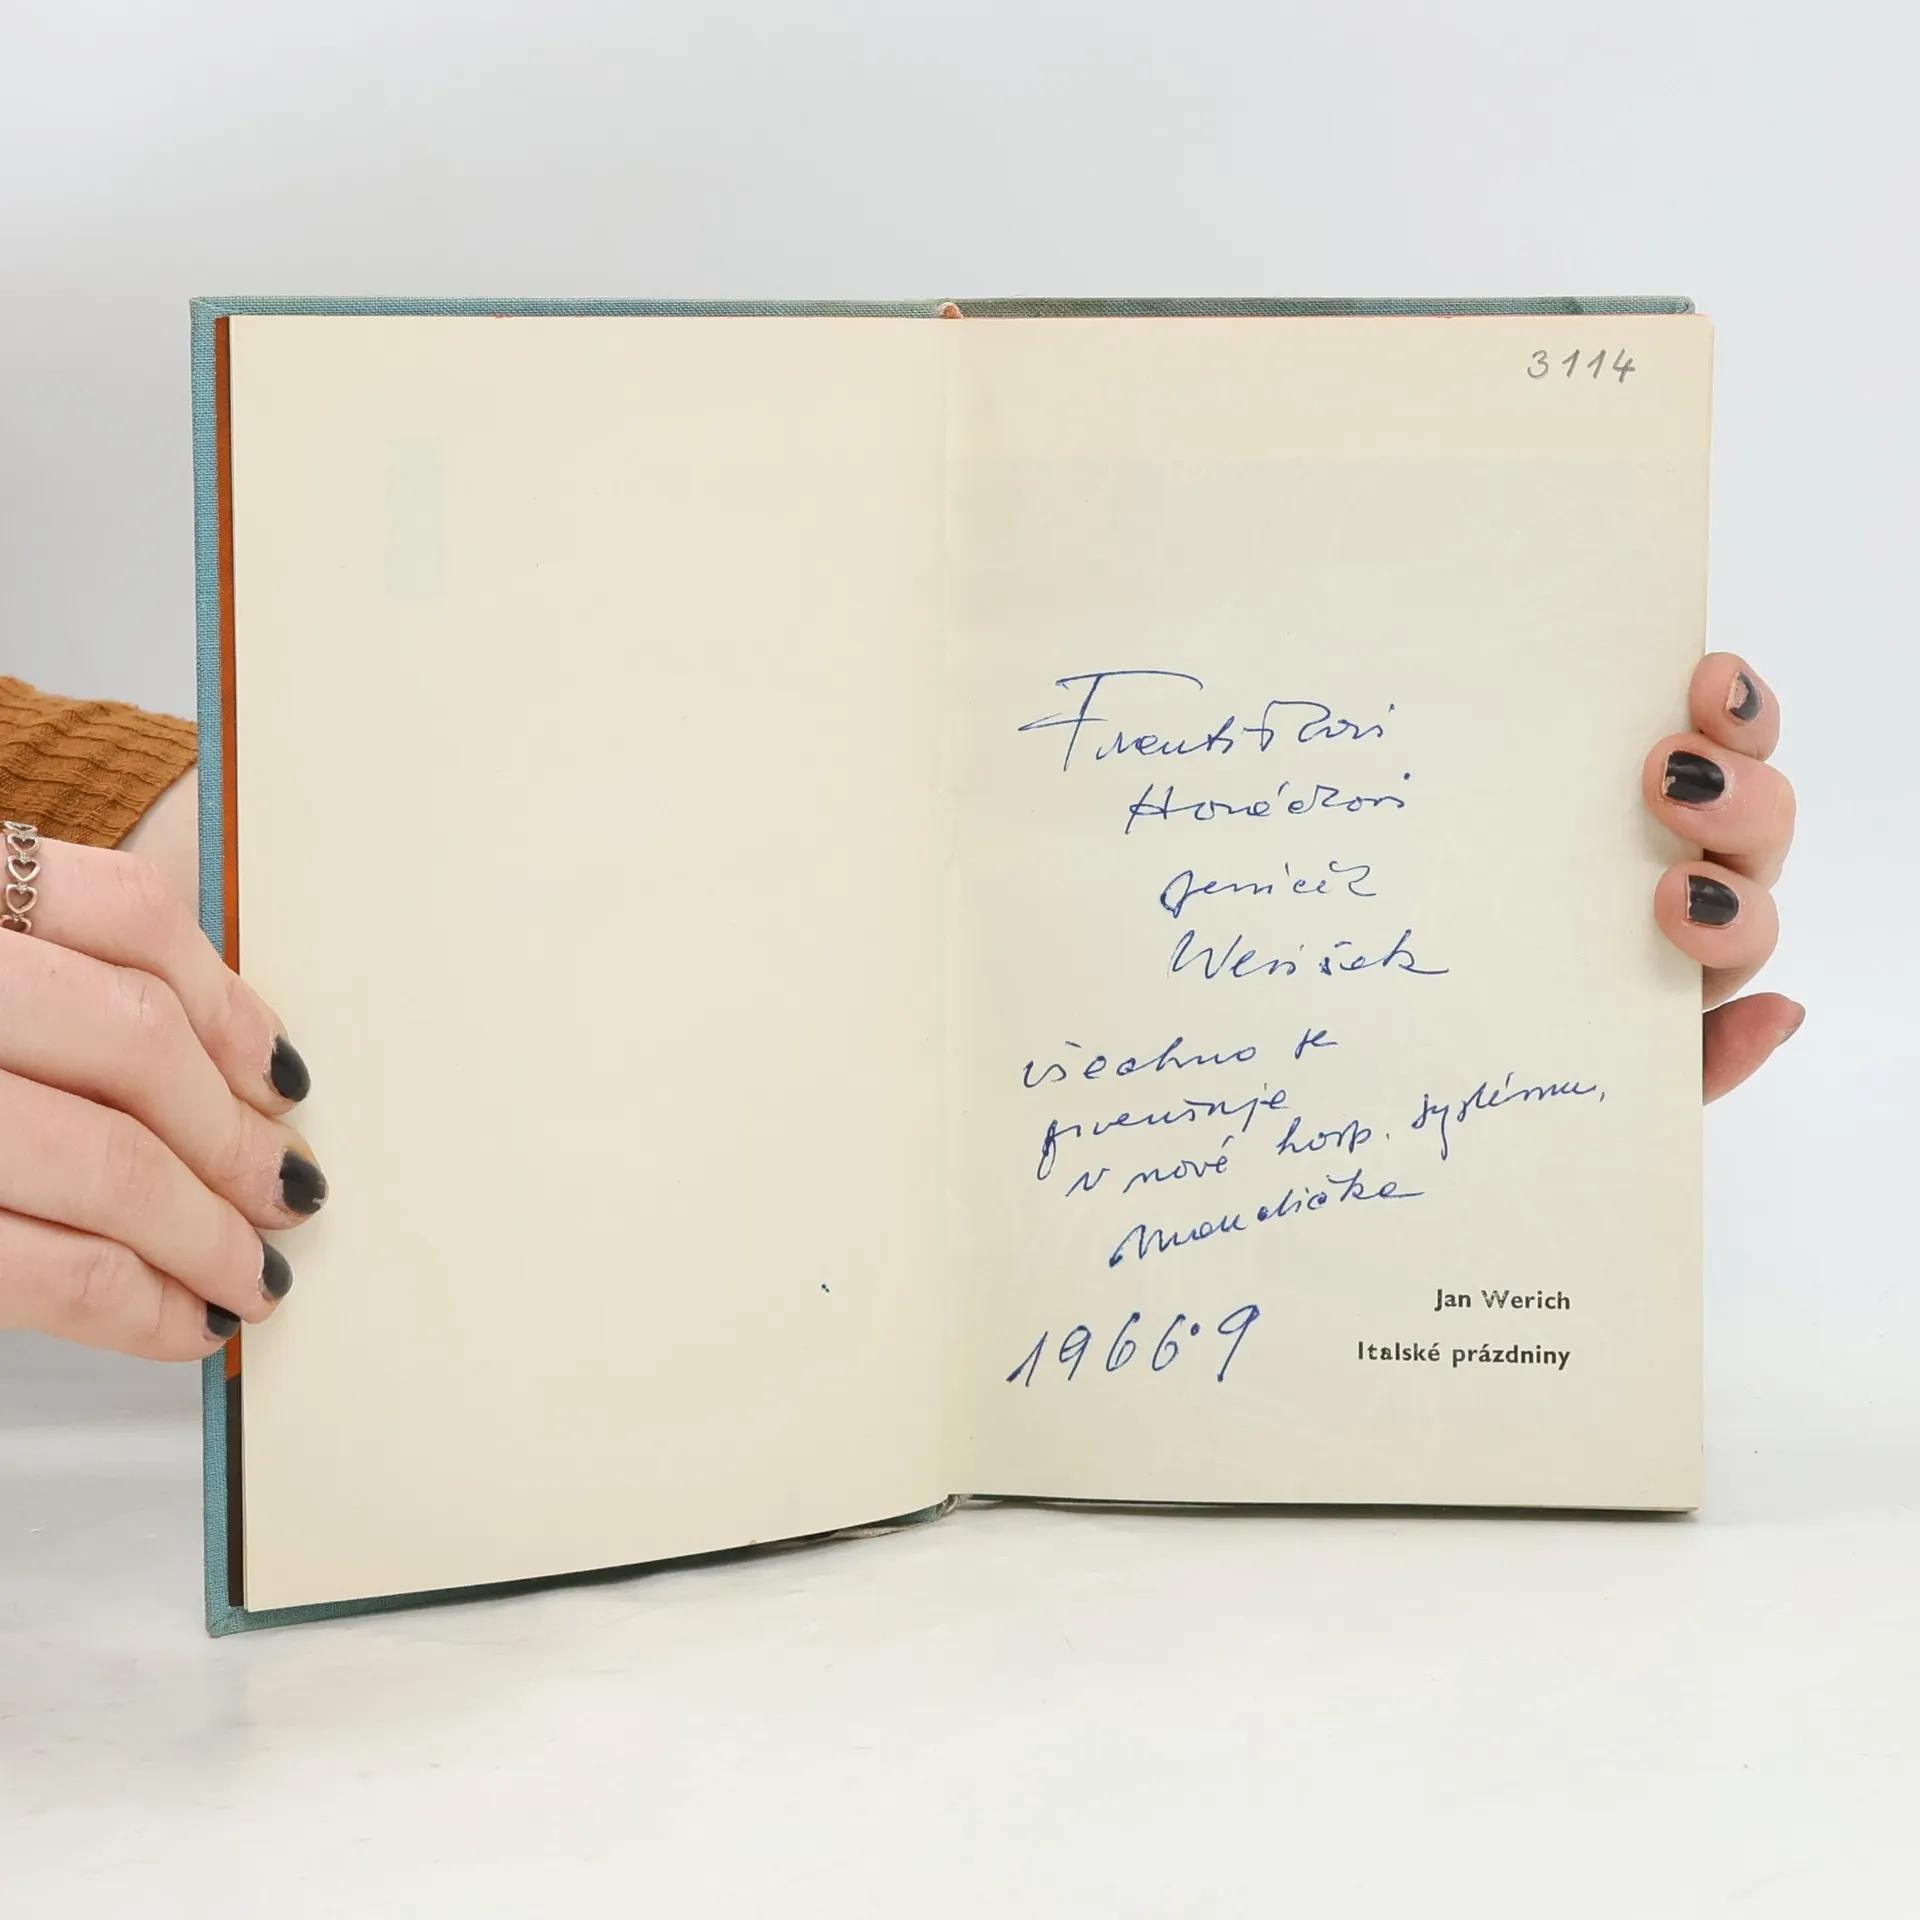 3114
Františkovi
Horáčkovi
Jeníček
Weríšek
všechno se
převršuje
v nové hosp. systému,
mandička
1966·9
Jan Werich
Italské prázdniny